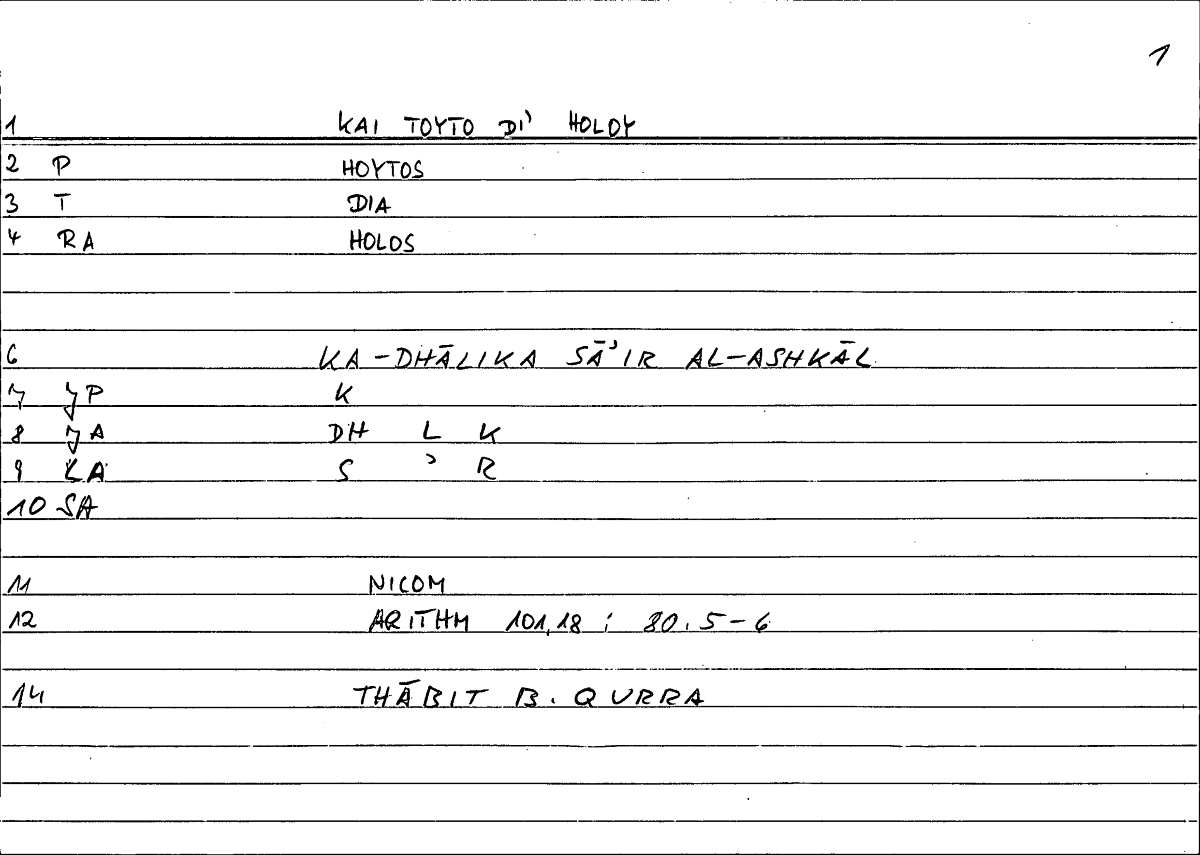 1
1 KAI TOYTO DI' HOLOY
2 P HOYTOS
3 T DIA
4 RA HOLOS
6 KA-DHĀLIKA SĀ'IR AL-ASHKĀL
7 P K
8 A DH L K
9 LA S ' R
10 SA
11 NICOM
12 ARITHM 101,18 ; 80.5-6
14 THĀBIT B. QURRA